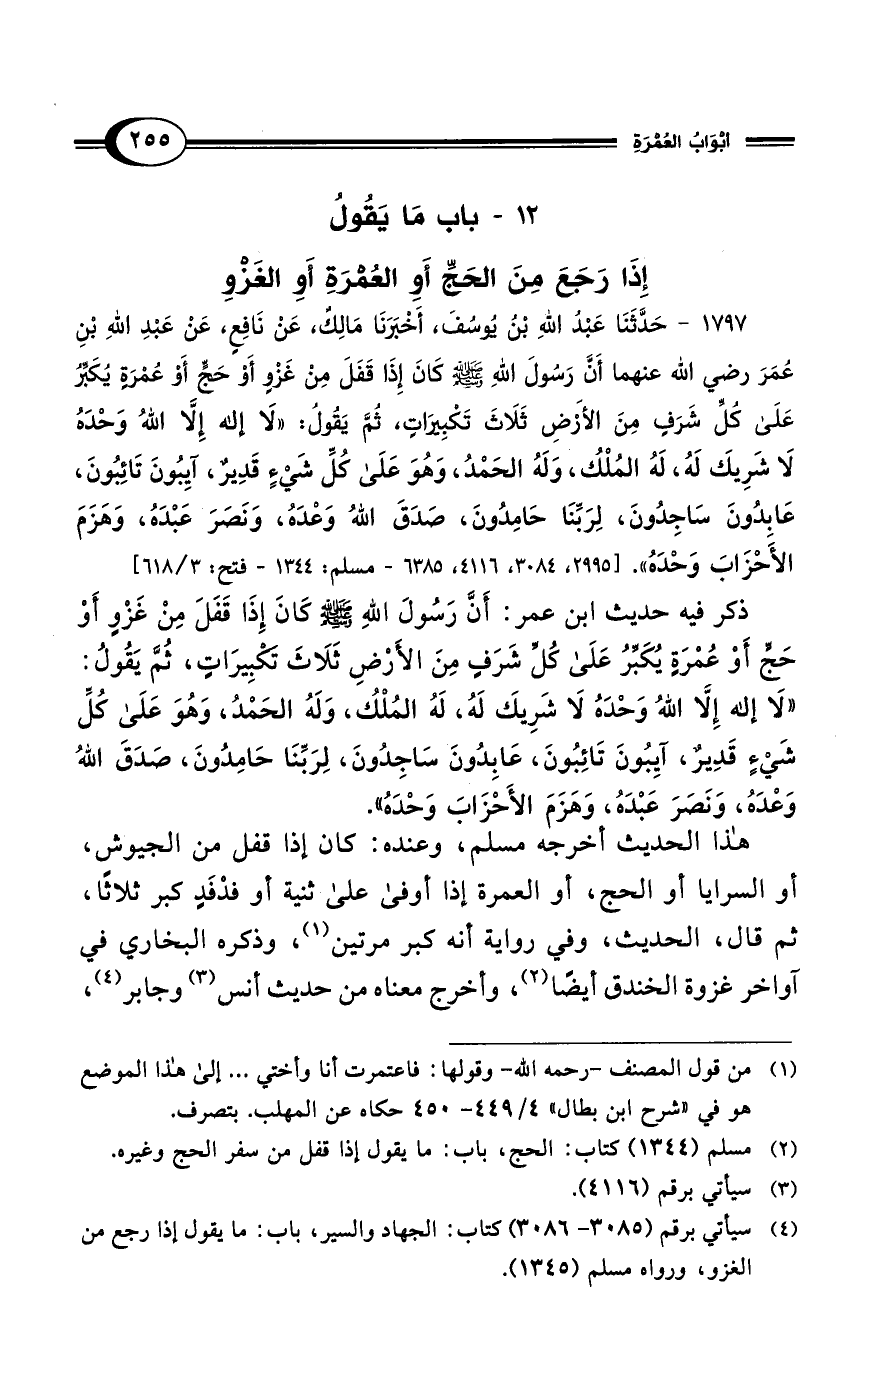 أبْوَابُ العُمْرَةِ ٢٥٥
١٢ - باب مَا يَقُولُ
إِذَا رَجَعَ مِنَ الحَجِّ أَوِ العُمْرَةِ أَوِ الغَزْوِ
١٧٩٧ - حَدَّثَنَا عَبْدُ اللهِ بْنُ يُوسُفَ، أَخْبَرَنَا مَالِكٌ، عَنْ نَافِعٍ، عَنْ عَبْدِ اللهِ بْنِ
عُمَرَ رضي الله عنهما أَنَّ رَسُولَ اللهِ ﷺ كَانَ إِذَا قَفَلَ مِنْ غَزْوٍ أَوْ حَجٍّ أَوْ عُمْرَةٍ يُكَبِّرُ
عَلَىٰ كُلِّ شَرَفٍ مِنَ الأَرْضِ ثَلَاثَ تَكْبِيرَاتٍ، ثُمَّ يَقُولُ: «لَا إله إِلَّا اللهُ وَحْدَهُ
لَا شَرِيكَ لَهُ، لَهُ المُلْكُ، وَلَهُ الحَمْدُ، وَهُوَ عَلَىٰ كُلِّ شَيْءٍ قَدِيرٌ، آيِبُونَ تَائِبُونَ،
عَابِدُونَ سَاجِدُونَ، لِرَبِّنَا حَامِدُونَ، صَدَقَ اللهُ وَعْدَهُ، وَنَصَرَ عَبْدَهُ، وَهَزَمَ
الأَحْزَابَ وَحْدَهُ». [٢٩٩٥، ٣٠٨٤، ٤١١٦، ٦٣٨٥ - مسلم: ١٣٤٤ - فتح: ٣/ ٦١٨]
ذكر فيه حديث ابن عمر: أَنَّ رَسُولَ اللهِ ﷺ كَانَ إِذَا قَفَلَ مِنْ غَزْوٍ أَوْ
حَجٍّ أَوْ عُمْرَةٍ يُكَبِّرُ عَلَىٰ كُلِّ شَرَفٍ مِنَ الأَرْضِ ثَلَاثَ تَكْبِيرَاتٍ، ثُمَّ يَقُولُ:
«لَا إله إِلَّا اللهُ وَحْدَهُ لَا شَرِيكَ لَهُ، لَهُ المُلْكُ، وَلَهُ الحَمْدُ، وَهُوَ عَلَىٰ كُلِّ
شَيْءٍ قَدِيرٌ، آيِبُونَ تَائِبُونَ، عَابِدُونَ سَاجِدُونَ، لِرَبِّنَا حَامِدُونَ، صَدَقَ اللهُ
وَعْدَهُ، وَنَصَرَ عَبْدَهُ، وَهَزَمَ الأَحْزَابَ وَحْدَهُ».
هذا الحديث أخرجه مسلم، وعنده: كان إذا قفل من الجيوش،
أو السرايا أو الحج، أو العمرة إذا أوفىٰ علىٰ ثنية أو فدْفَدٍ كبر ثلاثًا،
ثم قال، الحديث، وفي رواية أنه كبر مرتين(١)، وذكره البخاري في
آواخر غزوة الخندق أيضًا(٢)، وأخرج معناه من حديث أنس(٣) وجابر(٤)،
(١) من قول المصنف -رحمه الله- وقولها: فاعتمرت أنا وأختي ... إلىٰ هذا الموضع
هو في «شرح ابن بطال» ٤/ ٤٤٩- ٤٥٠ حكاه عن المهلب. بتصرف.
(٢) مسلم (١٣٤٤) كتاب: الحج، باب: ما يقول إذا قفل من سفر الحج وغيره.
(٣) سيأتي برقم (٤١١٦).
(٤) سيأتي برقم (٣٠٨٥- ٣٠٨٦) كتاب: الجهاد والسير، باب: ما يقول إذا رجع من
الغزو، ورواه مسلم (١٣٤٥).